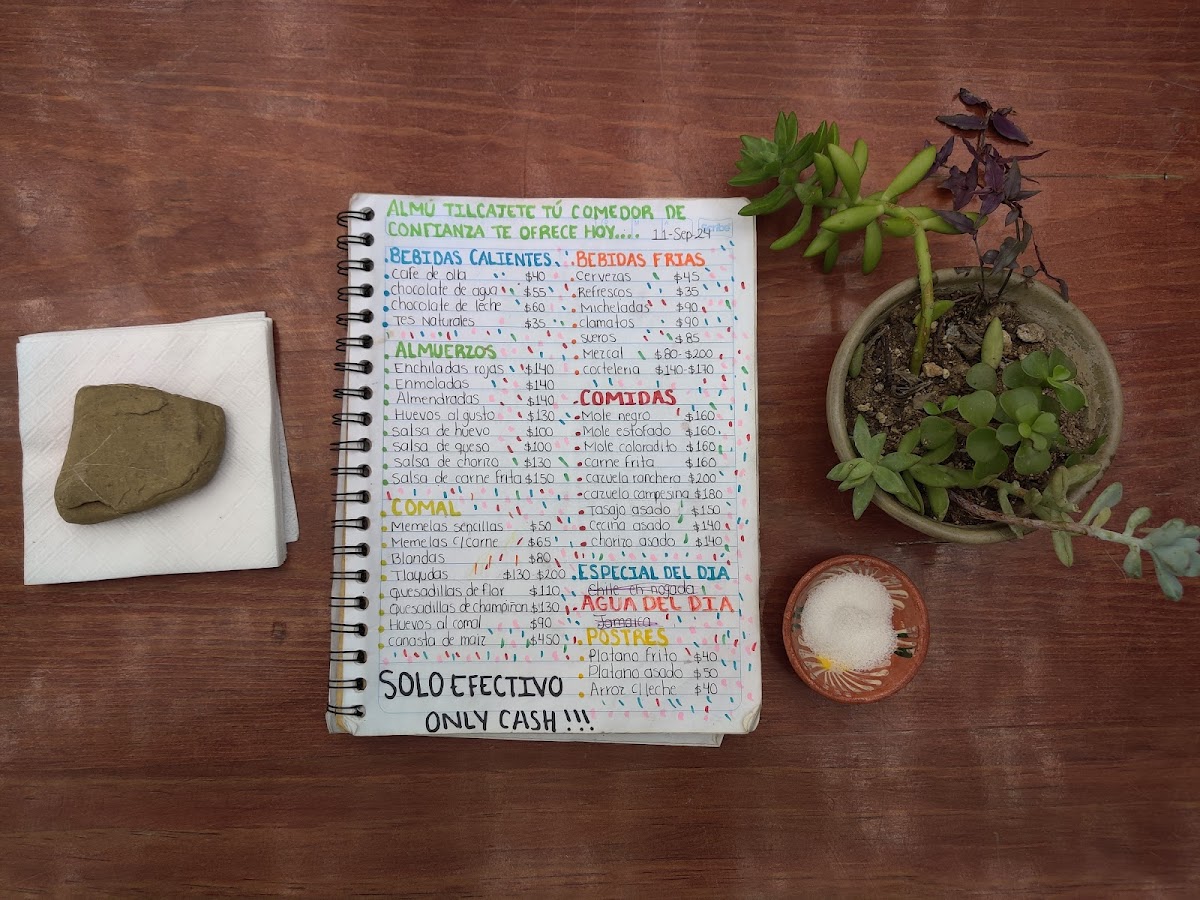 ALMÚ TILCAJETE TÚ COMEDOR DE
CONFIANZA TE OFRECE HOY....
Scribe
11-Sep-24
BEBIDAS CALIENTES
Cafe de olla $40
chocolate de agua $55
chocolate de leche $60
Tes Naturales $35
ALMUERZOS
Enchiladas rojas $140
Enmoladas $140
Almendradas $140
Huevos al gusto $130
salsa de huevo $100
salsa de queso $100
salsa de chorizo $130
salsa de carne frita $150
COMAL
Memelas sencillas $50
Memelas c/carne $65
Blandas $80
Tlayudas $130-$200
quesadillas de flor $110
Quesadillas de champiñon $130
Huevos al comal $90
canasta de maiz $450
SOLO EFECTIVO
ONLY CASH!!!
BEBIDAS FRIAS
Cervezas $45
Refrescos $35
Micheladas $90
clamatos $90
sueros $85
Mezcal $80-$200
cocteleria $140-$130
COMIDAS
Mole negro $160
Mole estofado $160
Mole coloradito $160
carne frita $160
cazuela ranchera $200
cazuela campesina $180
Tasajo asado $150
Cecina asado $140
chorizo asado $140
ESPECIAL DEL DIA
Chile en nogada
AGUA DEL DIA
Jamaica
POSTRES
Platano frito $40
Platano asado $50
Arroz c/leche $40